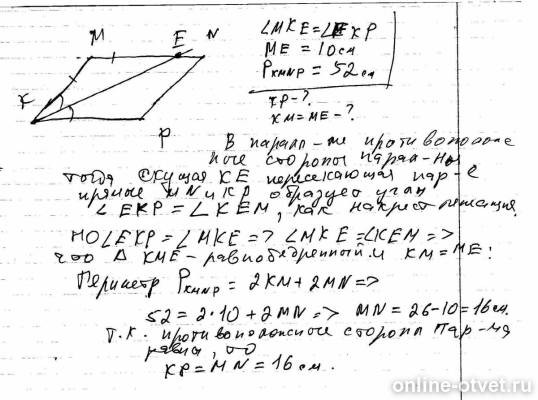 M E N
K
P
∠MKE = ∠EKP
ME = 10 см
P KMNP = 52 см
KP - ?
KM = ME - ?
В парал-ме противоположные
стороны парал-ны
тогда секущая KE пересекающая пар-е
прямые MN и KP образует углы
∠EKP = ∠KEM, как накрест лежащие.
НО ∠EKP = ∠MKE => ∠MKE = ∠KEM =>
что Δ KME - равнобедренный и KM = ME.
Периметр P KMNP = 2KM + 2MN =>
52 = 2·10 + 2MN => MN = 26 - 10 = 16 см.
Т.К. противоположные стороны пар-ма
равны, то
KP = MN = 16 см.
online-otvet.ru